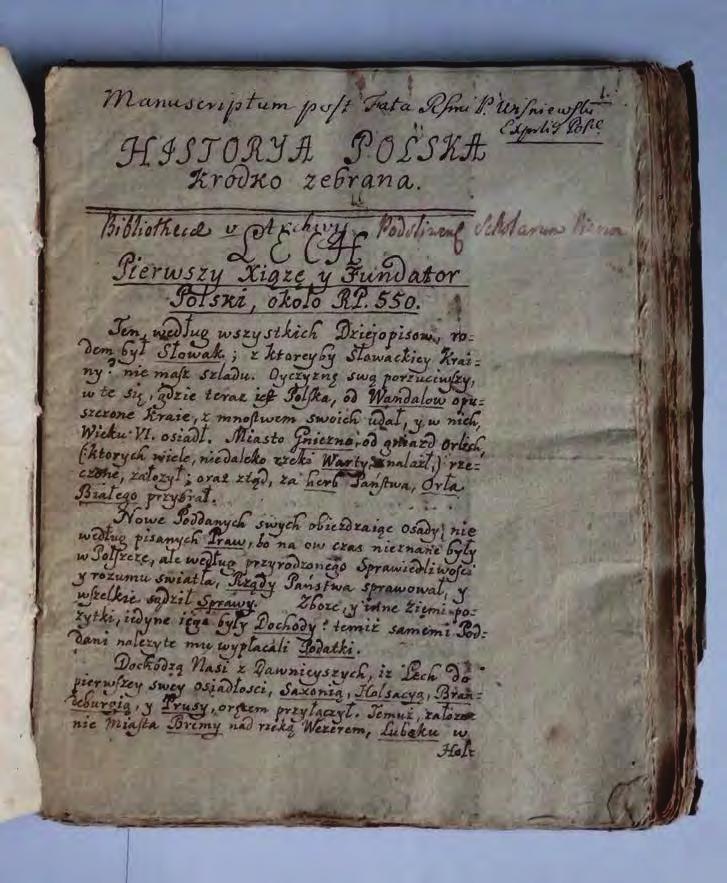 Manuscriptum post Fata Rsmi P. Wiśniewski
1.
HISTORYA POLSKA
Krodko zebrana.
Bibliothecæ Archivi Podoliznens Scholarum
LECH
Pierwszy Xiąże y Fundator
Polski, około RP. 550.
Ten, według wszystkich Dziejopisow, ro-
dem był Słowak; z ktoreyby Słowackiey Krai-
ny? nie masz szladu. Oyczyznę swą porzuciwszy,
w te się, gdzie teraz iest Polska, od Wandalow opu-
szczone Kraie, z mnostwem swoich udał, y w nich,
Wieku VI. osiadł. Miasto Gniezno, od gniazd Orlich,
(:ktorych wiele, niedaleko rzeki Warty, znalazł,) rze-
czone, założył; oraz ztąd, za herb Państwa, Orła
Białego przybrał.
Nowe Poddanych swych obieżdzaiąc osady, nie
według pisanych Praw, bo na ow czas nieznane były
w Polszcze, ale według przyrodzonego Sprawiedliwości
y rozumu światła, Rządy Państwa sprawował, y
wszelkie sądził Sprawy. Zboże, y inne Ziemi po-
żytki, iedyne iego były Dochody? temiż samemi Pod-
dani należyte mu wypłacali Podatki.
Dochodzą Nasi z Dawnieyszych, iż Lech do
pierwszey swey osiadłosci, Saxonią, Holsacyą, Bran-
deburgią, y Prusy, orężem przyłączył. Temuż, założe-
nie Miasta Bremy nad rzeką Wezerem, Lubeku w
Holt